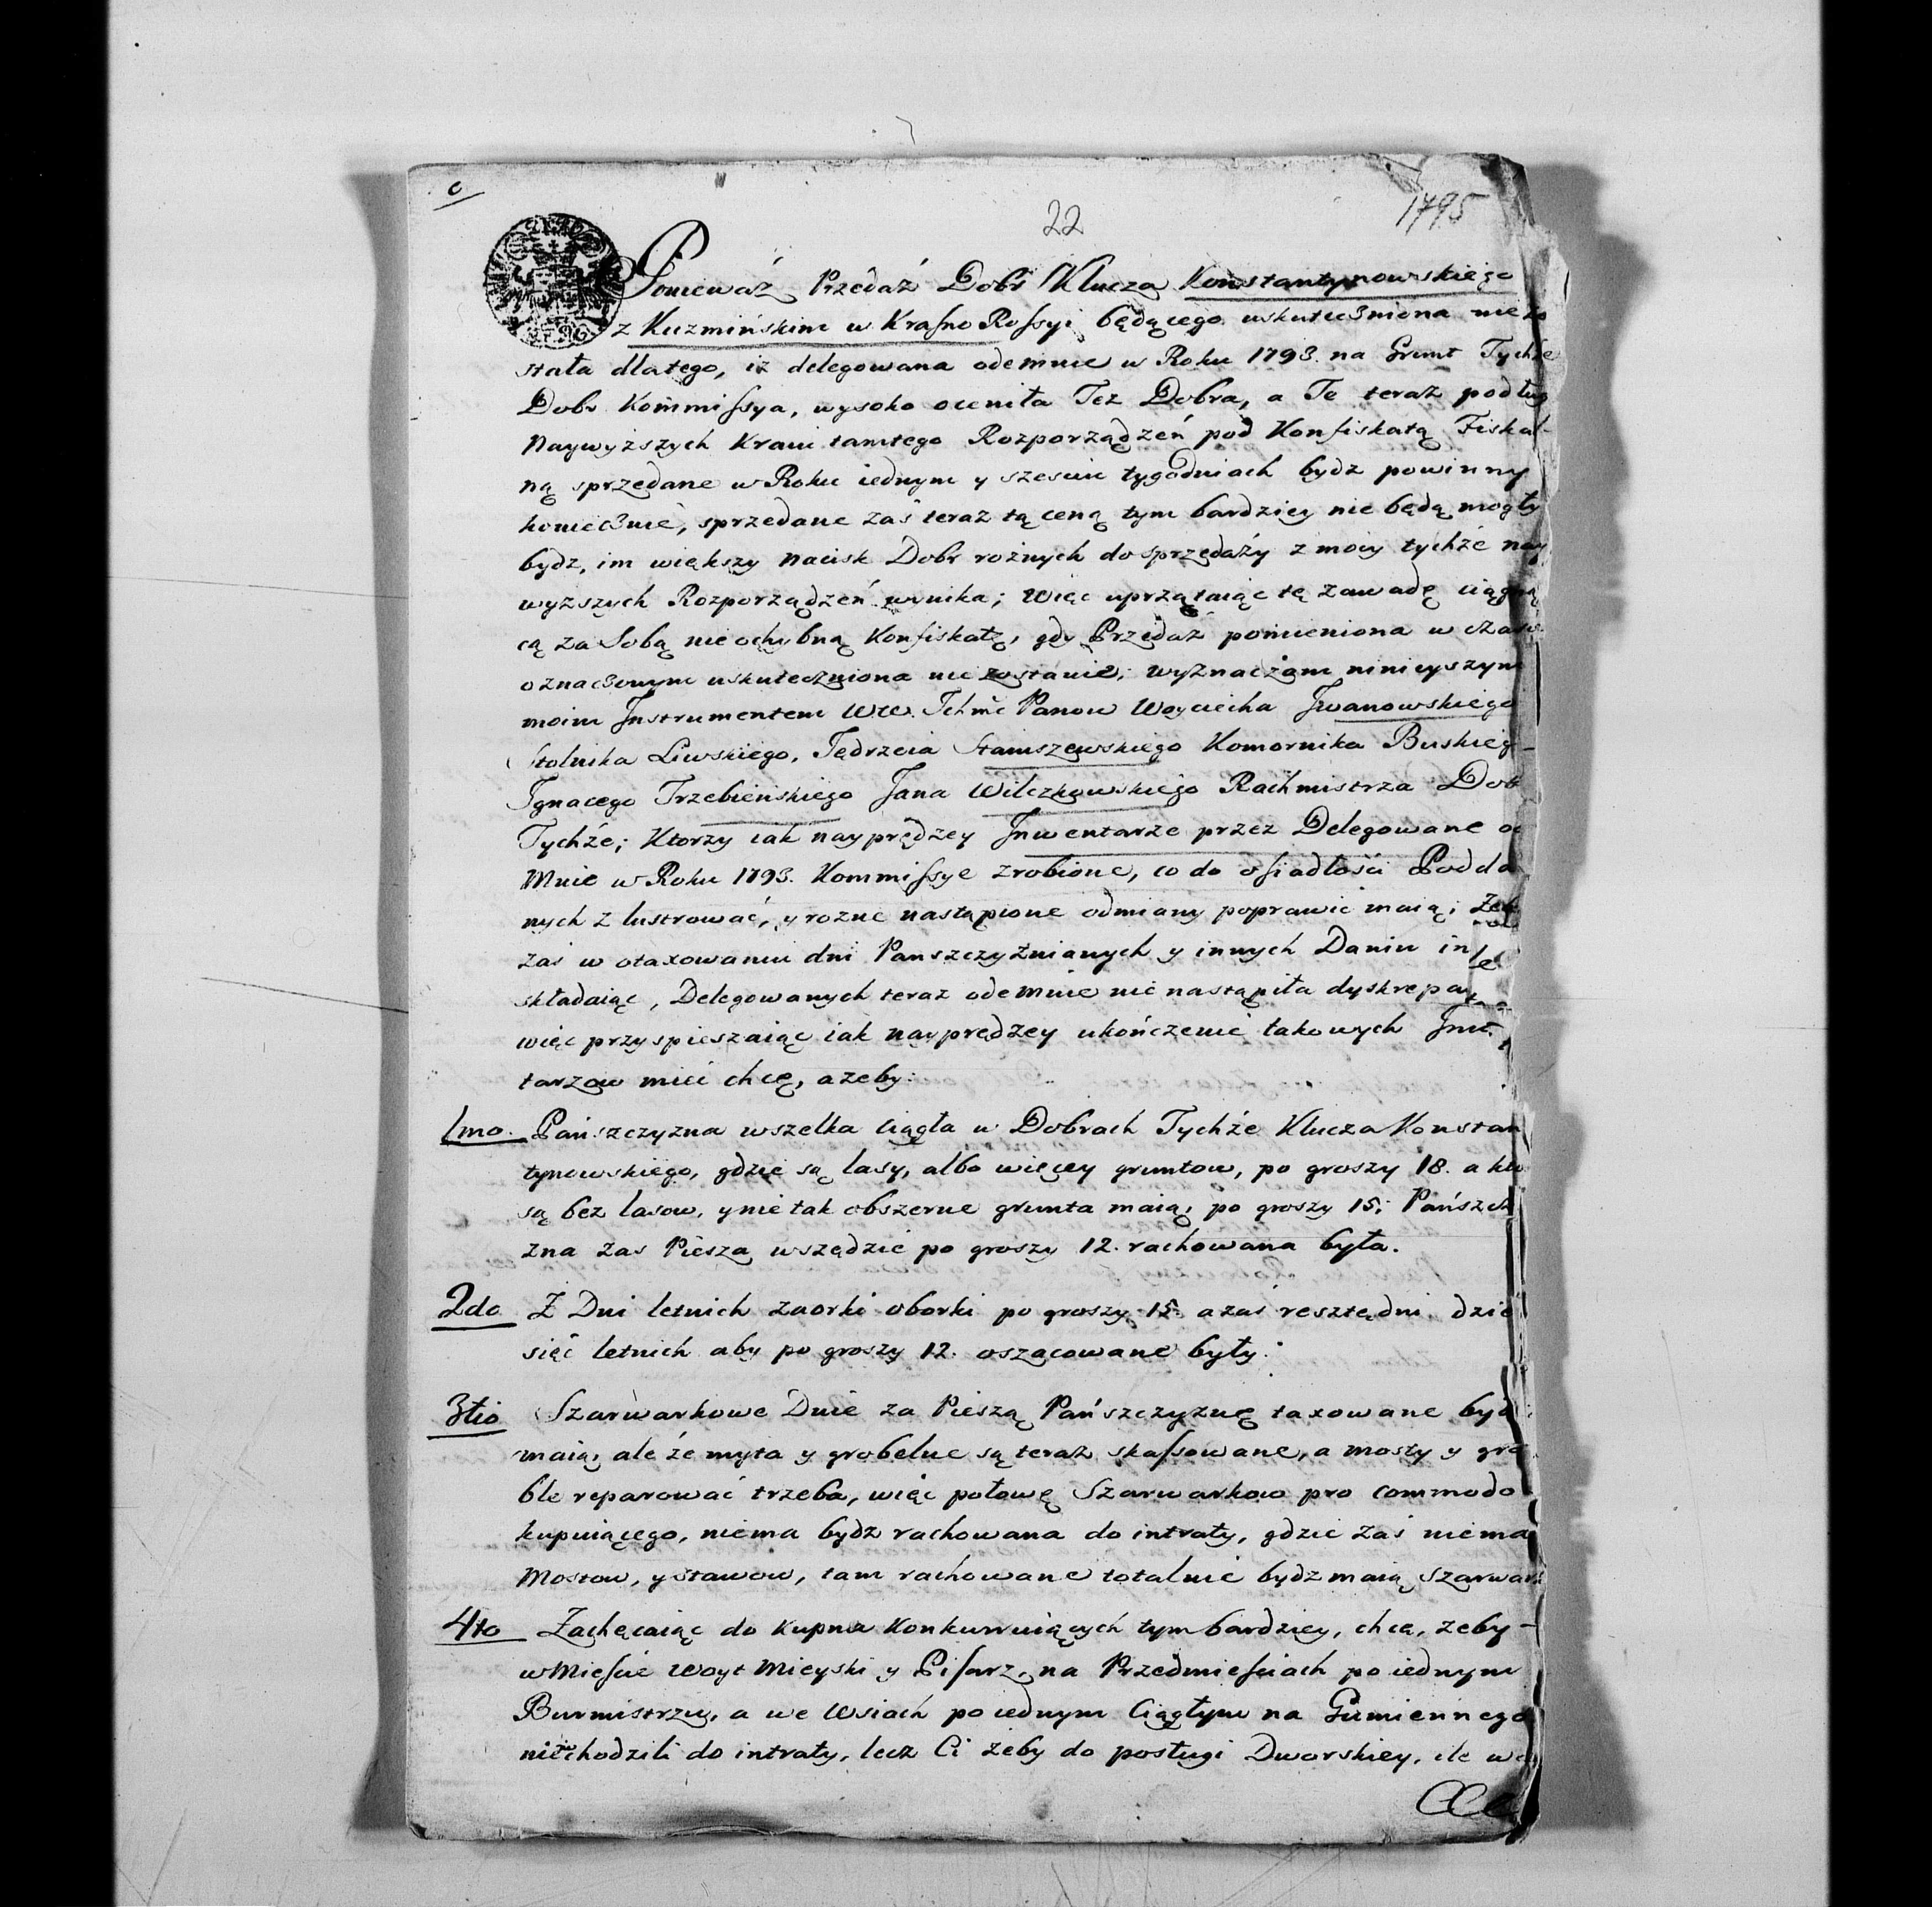 c
22
1795
Ponieważ Przedaż Dobr Klucza Konstantynowskiego
z Kuzminskim w Krasno Rossyi będącego uskuteczniona nie zo
stała dlatego, iż delegowana odemnie w Roku 1793. na Grunt Tychże
Dobr Kommissya, wysoko oceniła Też Dobra, a Te teraz podług
Naywyższych Kraiu tamtego Rozporządzeń pod Konfiskatą Fiskal-
ną sprzedane w Roku iednym y szesciu tygodniach bydz powinny
koniecznie, sprzedane zaś teraz tą ceną tym bardziey nie będą mogły
bydz, im większy nacisk Dobr rożnych do sprzedaży z mocy tychże nay
wyższych Rozporządzeń wynika; Więc uprzątaiąc tę zawadę ciągną
cą za Sobą nieochybną Konfiskatę, gdy Przedaż pomieniona w czasie
oznaczonym uskuteczniona nie zostanie; wyznaczam ninieyszym
moim Jnstrumentem WW. Jchmć Panow Woyciecha Jwanowskiego
Stolnika Liwskiego, Jędrzeia Staniszewskiego Komornika Buskieg-
Jgnacego Trzebieńskiego Jana Wilczkowskiego Rachmistrza Dob
Tychże; Ktorzy iak nayprędzey Jnwentarze przez Delegowane o
Mnie w Roku 1793. Kommissye zrobione, co do osiadłości Podda
nych zlustrować, y rozne nastąpione odmiany poprawić maią; Zeb
zaś w otaxowaniu dni Panszczyznianych y innych Danin in
składaiąc, Delegowanych teraz odemnie nie nastąpiła dyskrepa
więc przyspieszaiąc iak nayprędzey ukończenie takowych Jnw
tarzow mieć chcę, azeby:
1mo. Pańszczyzna wszelka ciągła w Dobrach Tychże Klucza Konstan
tynowskiego, gdzie są lasy, albo więcey gruntow, po groszy 18. a kto
są bez lasow, y nie tak obszerne grunta maią, po groszy 15; Pańszcz
zna zas Piesza wszędzie po groszy 12. rachowana była.
2do Z Dni letnich zaorki oborki po groszy 15. a zaś resztę dni dzie
sięć letnich aby po groszy 12. oszacowane były.
3tio Szarwarkowe Dnie za Pieszą Pańszczyznę taxowane bydz
maią, ale że myta y grobelne są teraz skassowane, a mosty y gro
ble reparować trzeba, więc połowę Szarwarkow pro commodo
kupuiącego, niema bydz rachowana do intraty, gdzie zaś niema
Mostow, y stawow, tam rachowane totalnie bydz maią szarwark
4to Zachęcaiąc do kupna Konkurruiących tym bardziey, chcę, zeby-
w Mieście Woyt Mieyski y Pisarz, na Przedmieściach po iednym
Burmistrzu, a we Wsiach po iednym Ciągłym na Gumiennego
niewchodzili do intraty, lecz Ci żeby do posługi Dworskiey, ile we